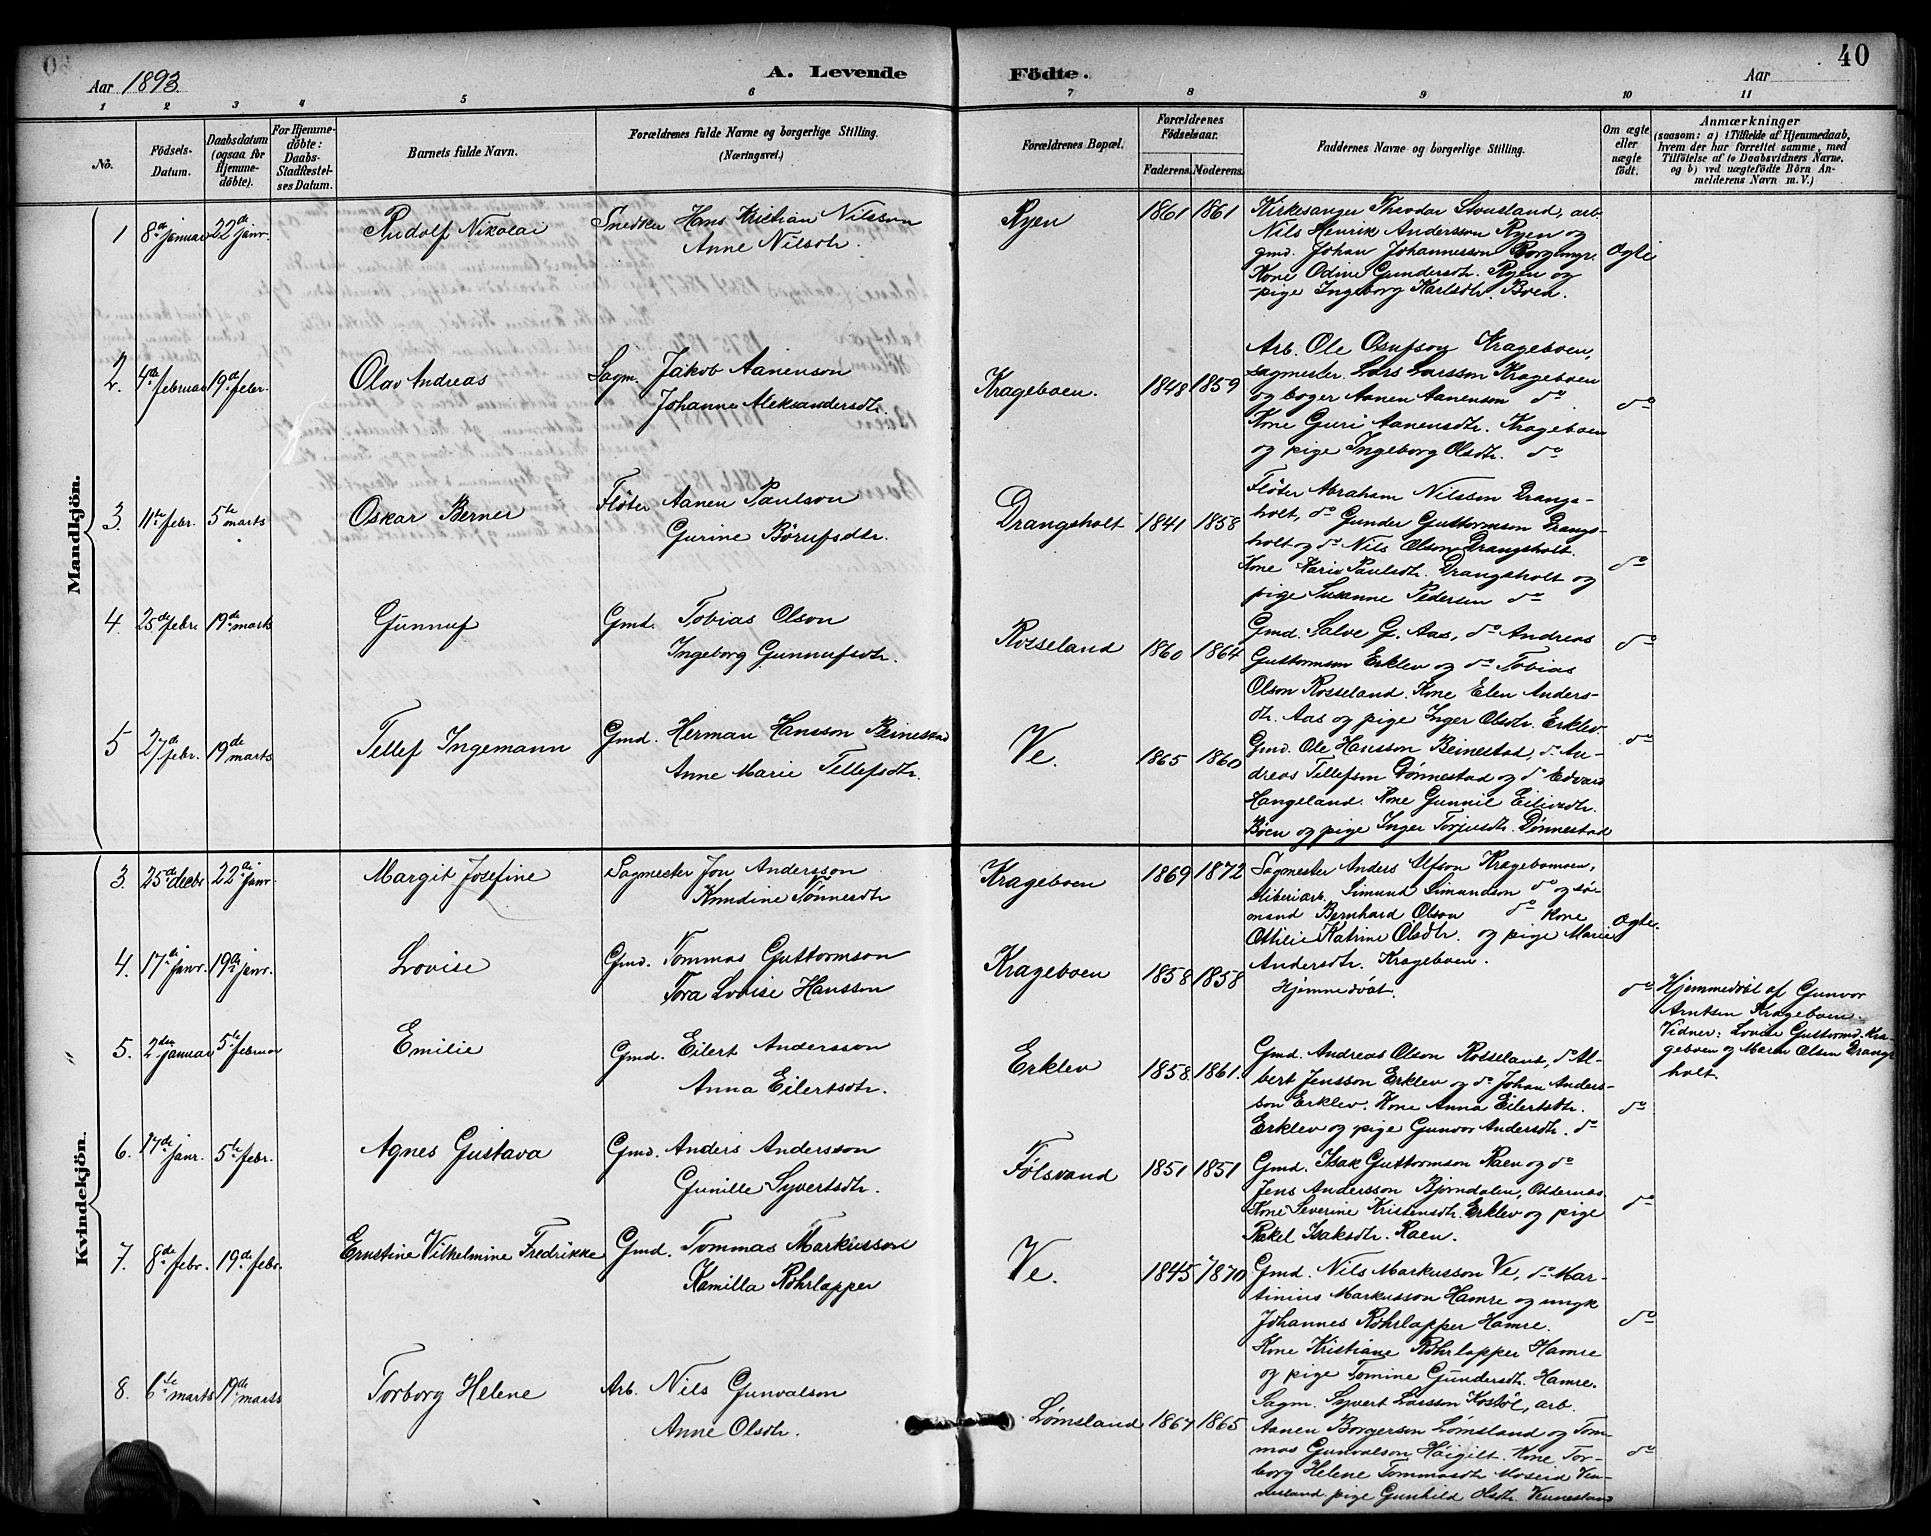 40
Aar 1893.
A. Levende Födte.
Aar
1 2 3 4 5 6 7 8 9 10 11
No.
Födsels-Datum.
Daabsdatum (ogsaa for Hjemme-döbte).
For Hjemme-döbte: Daabs-Stadfæstel-ses Datum.
Barnets fulde Navn.
Forældrenes fulde Navne og borgerlige Stilling. (Næringsvei.)
Forældrenes Bopæl.
Forældrenes Födselsaar.
Faderens. Moderens.
Faddernes Navne og borgerlige Stilling.
Om ægte eller uægte födt.
Anmærkninger
(saasom: a) i Tilfælde af Hjemmedaab, hvem der har forrettet samme, med Tilföielse af to Daabsvidners Navne, og b) ved uægtefödte Börn An-melderens Navn m. V.)
Mandkjön.
1 8de januar 22de janr. Rudolf Nikolai
Snedker Hans Kristian Nilsson
Anne Nilsdtr.
Ryen 1861 1861
Kirkesanger Theodor Stousland, arb.
Nils Henrik Andersson Ryen og
gmd. Johan Johannesson Borgemyr.
Kone Odine Gundersdtr. Ryen og
pige Ingeborg Karlsdtr. Boen.
Ægte
2. 4de februar 19de febr. Olav Andreas
Sagm. Jakob Aanenson
Johanne Aleksandersdtr.
Krageboen. 1848 1859
Arb. Ole Osufson Krageboen,
sagmester Lars Larsson Krageboen
og boger Aanen Aanenson do
Kone Guri Aanensdtr. Krageboen
og pige Ingeborg Olsdtr. do
do
3. 11te febr. 5te marts Oskar Berner
Fløter Aanen Paulson
Gurine Børufsdtr.
Drangsholt 1841 1858
Fløter Abraham Nilssen Drangs-
holt, do Gunder Guttormson Drangs-
holt og do Nils Olson Drangsholt.
Kone Karen Paulsdtr. Drangsholt og
pige Susanne Pedersen do
do
4. 25de febr. 19de marts Gunnuf
Gmd. Tobias Olson
Ingeborg Gunnufsdtr.
Rosseland 1860 1864
Gmd. Salve G. Aas, do Andreas
Guttormson Erklev og do Tobias
Olson Rosseland. Kone Elen Anders-
dtr. Aas og pige Inger Olsdtr. Erklev.
do
5 27de febr. 19de marts Tellef Ingemann
Gmd. Herman Hansson Beinestad
Anne Marie Tellefsdtr.
Ve. 1865 1860
Gmd. Ole Hansson Beinestad, do An-
dreas Tellefsen Dønnestad og do Edvard
Hangeland. Kone Gunnil Eilivsdtr.
Boen og pige Inger Torjusdtr. Dønnestad
do
Kvindekjön.
3. 25de decbr 22de janr. Margit Josefine
Sagmester Jon Andersson
Knudine Tønnesdtr
Krageboen 1869 1872
Sagmester Anders Ulfson Krageboen,
sliberiarb. Simund Simundson do og sø-
mand Bernhard Olson do Kone
Ottilie Katrine Olsdtr. og pige Marie
Andersdtr. Krageboen.
Ægte.
4. 17de janr. 19de janr. Lovise
Gmd. Tommas Guttormson
Tora Lovise Hansson
Krageboen 1858 1858
Hjemmedøbt.
do
Hjemmedøbt af Gunvor
Arntsen Krageboen.
Vidner: Lovise Guttormsd. Kra-
geboen og Maren Olsen Drangs-
holt.
5. 2den januar 5te februar Emilie
Gmd. Eilert Andersson
Anna Eilertsdtr.
Erklev 1858. 1861.
Gmd. Andreas Olson Rosseland, do Al-
bert Jensson Erklev og do Johan Anders-
son Erklev. Kone Anna Eilertsdtr.
Erklev og pige Gunvor Andersdtr. do
do
6. 17de janr. 5te febr. Agnes Gustava
Gmd. Anders Andersson
Gunille Syvertsdtr.
Følsvand 1851 1851
Gmd. Isak Guttormson Raen og do
Jens Andersson Bjørndalen, Oddernes.
Kone Severine Kristensdtr. Erklev og pige
Rakel Isaksdtr. Raen.
do
7. 8de febr. 19de febr. Ernstine Vilhelmine Fredrikke
Gmd. Tommas Markusson
Kamilla Rohrlapper
Ve. 1845 1870
Gmd. Nils Markusson Ve, do Mar-
tinius Markusson Hamre og ungk
Johannes Rohrlapper Hamre.
Kone Kristiane Rohrlapper Hamre
og pige Tomine Gundersdtr. Hamre.
do
8. 6te marts 19de marts Torborg Helene
Arb. Nils Gunvalson
Anne Olsdtr.
Lømsland 1867 1865
Sagm. Syvert Larsson Kostøl, arb.
Aanen Borgerson Lømsland og Tom-
mas Gunvalson Høigilt. Kone Tor-
borg Helene Tommasdtr Moseid Ven-
nesland pige Gunhild Olsdtr. Vennesland
do